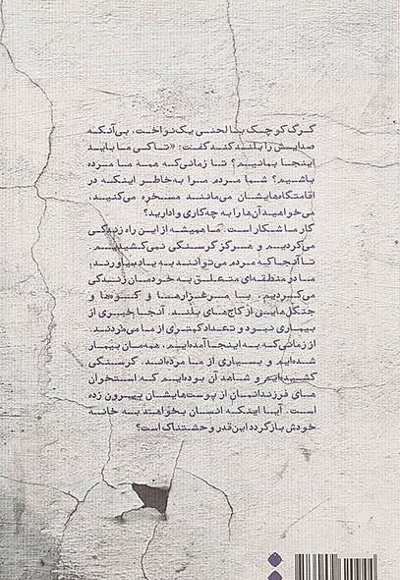 گرگ کوچک با لحنی یک‌نواخت، بی‌آنکه
صدایش را بلند کند گفت: «تا کی ما باید
اینجا بمانیم؟ تا زمانی‌که همه ما مرده
باشیم؟ شما مردم مرا به‌خاطر اینکه در
اقامتگاه‌هایشان می‌مانند مسخره می‌کنید،
می‌خواهید آن‌ها را به چه‌کاری وادارید؟
کار ما شکار است. ما همیشه از این راه زندگی
می‌کردیم و هرگز گرسنگی نمی‌کشیدیم.
تا آنجا که مردم می‌توانند به یاد بیاورند،
ما در منطقه‌ای متعلق به خودمان زندگی
می‌کردیم. با مرغزارها و کوه‌ها و
جنگل‌هایی از کاج‌های بلند. آنجا خبری از
بیماری نبود و تعداد کمتری از ما می‌مردند.
از زمانی‌که به اینجا آمده‌ایم، همه‌مان بیمار
شده‌ایم و بسیاری از ما مرده‌اند. گرسنگی
کشیده‌ایم و شاهد آن بوده‌ایم که استخوان
های فرزندانمان از پوست‌هایشان بیرون زده
است. آیا اینکه انسان بخواهند به خانه
خودش بازگردد این‌قدر وحشتناک است؟